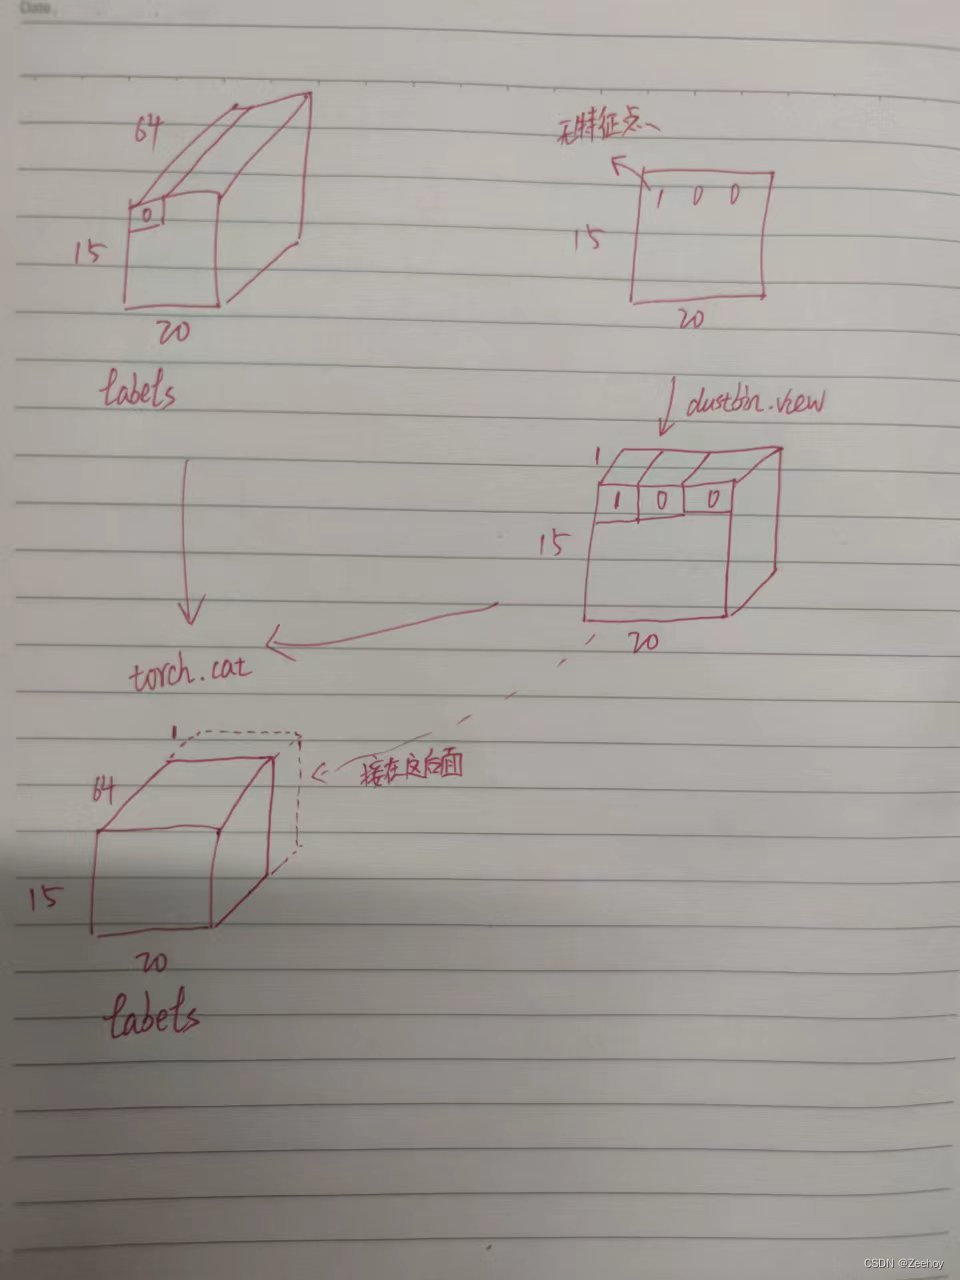 Date
64
0
15
20
labels
无特征点
1 0 0
15
20
dustbin.view
1
1 0 0
15
20
torch.cat
1
64
接在这后面
15
20
labels
CSDN @Zeehoy